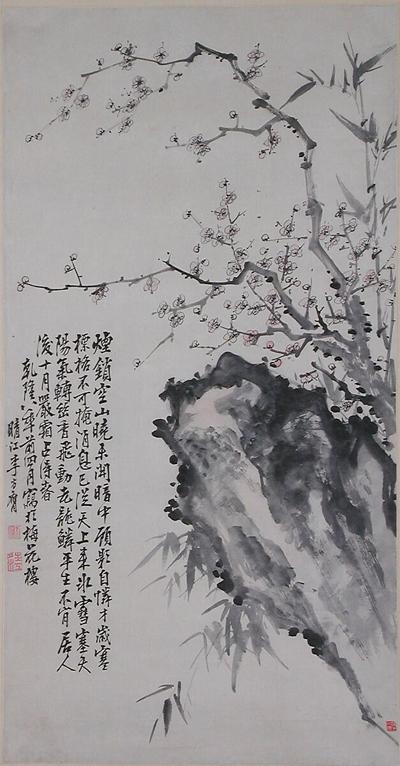 煙鎖空山曉未開暗中顧影自憐才歲寒
標格不可掩消息已從天上來冰雪塞天
陽氣轉餘香飛動老龍鱗平生不肯居人
後十月嚴霜占得春
乾隆八年前四月寫於梅花樓
晴江李方膺